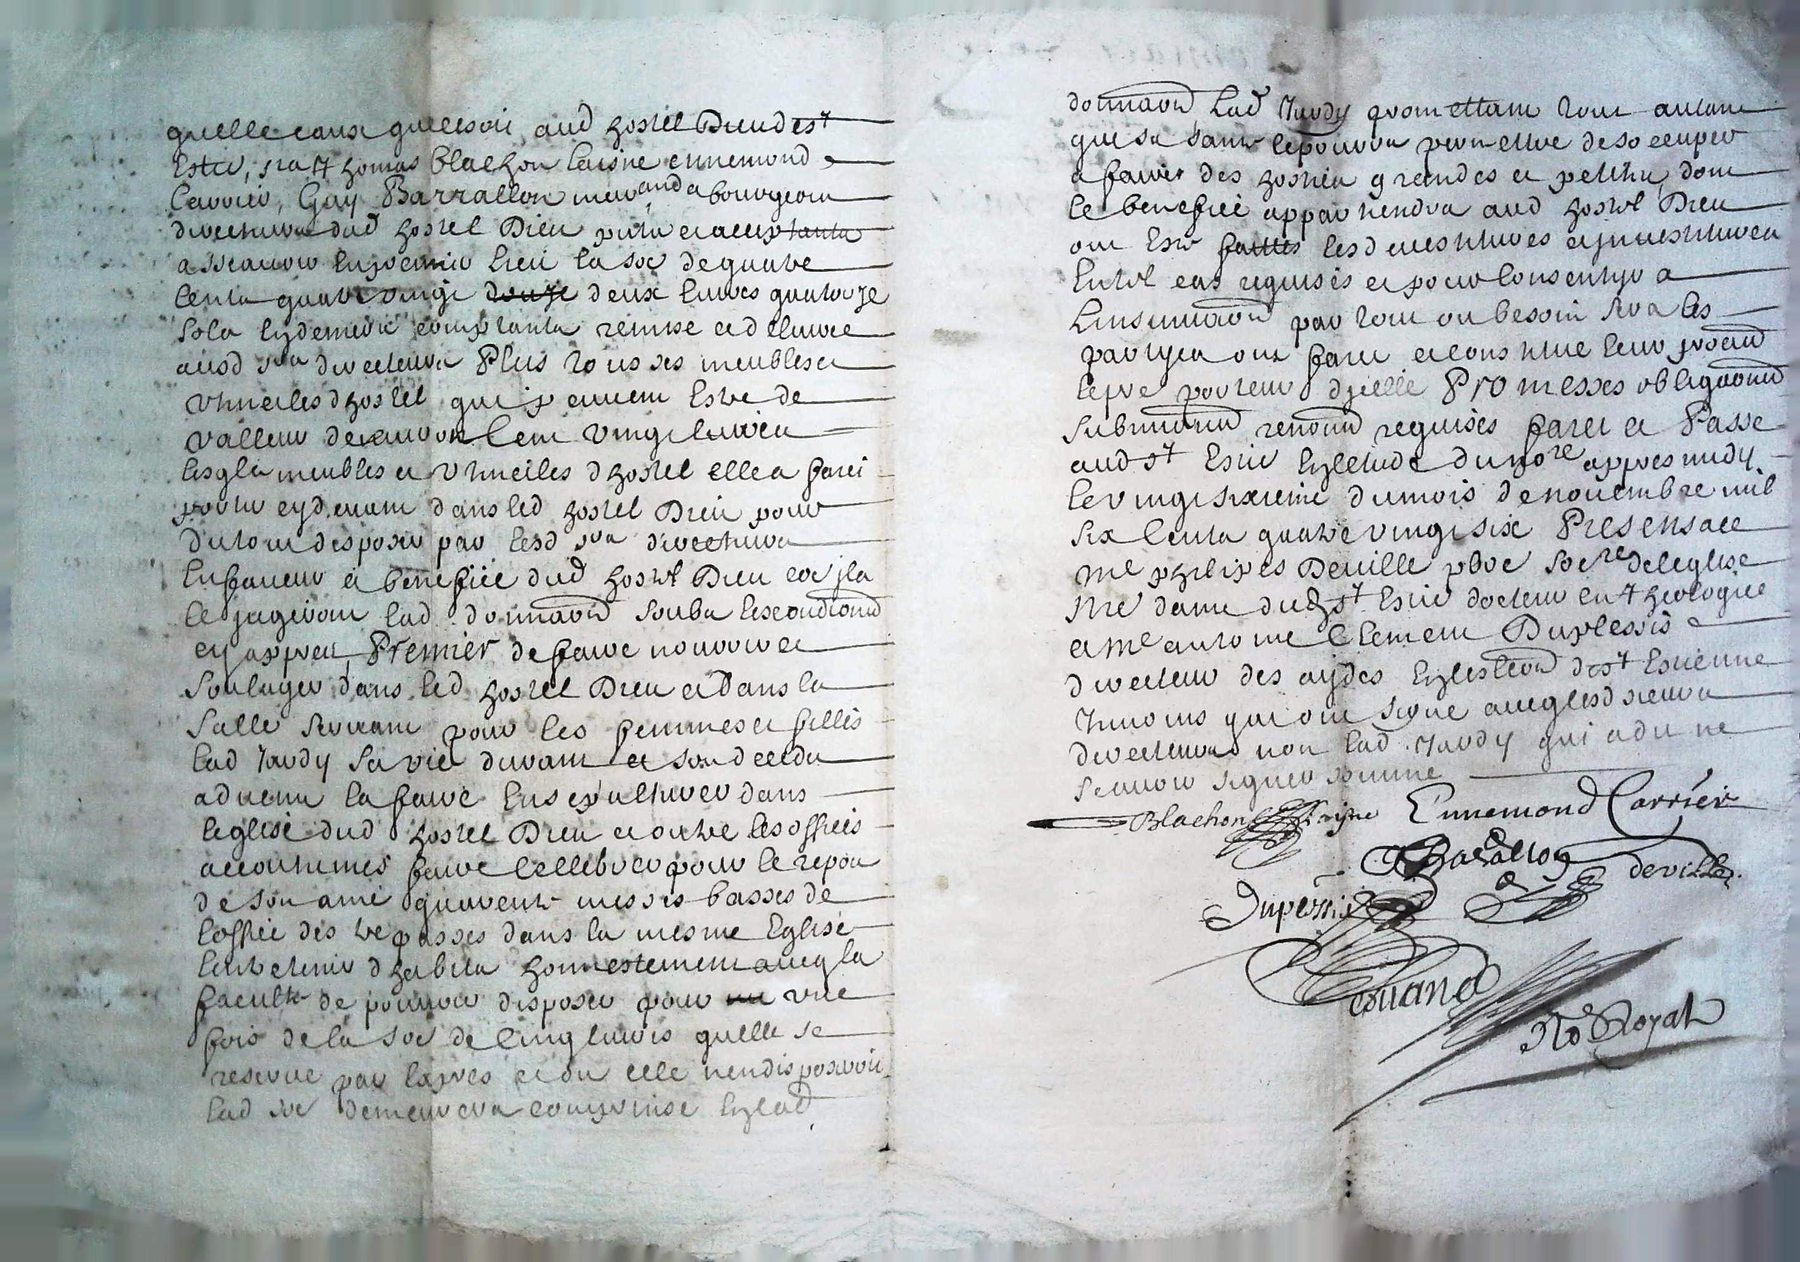 quelle eaux quilsoit aud hostel Dieu de st
Esti, sra Thomas Blachon laisne ennemond
Carrier, Guy Barrallon marchand & bourgeois
directeurs dud hostel Dieu pnts et acceptants
asseavoir en premier lieu la soe de quatre
Cents quatre vingt douze deux livres quatorze
sols en deniers comptants remise et delivree
ausd srs directeurs Plus tous ses meubles et
utheciles dhostel qui peuvent Estre de
valleur denviron Cent vingt livres
lesqls meubles et uthenciles dhostel elle a faict
porter cydevant dans led hostel Dieu pour
du tout disposer par lesd srs directeurs
en faveur et benefice dud hostel Dieu
lad donnaon soubs les condiaons
cy apres Premier de faire nourrir et
soulager dans led hostel Dieu et dans la
salle servant pour les femmes et filles
lad Jardy sa vie durant et son deceds
advenu la faire ensepulturer dans
leglise dud hostel Dieu et outre les offices
accoutumes faire cellebrer pour le repos
de son ame quarente messes basses de
loffice des trepasses dans la mesme Eglise
lentretenir dhabits honnestement avec la
faculte de pouvoir disposer pour un une
fois de la soe de Cinq livres quelle se
reserve par Expres et ou elle nen disposeroit
lad soe demeurera comprinse en lad
donnaon Lad Jardy promettant tout autant
que sa sante le pourra permettre de soccuper
a faire des hosties grandes et petites dont
le benefice appartiendra aud hostel Dieu
ont Este faittes lesd
En tel cas requises et pour Consentir a
Linsinuaon par tout ou besoin sera les
partyes ont faict et constitue leur procur
le pnt porteur dicelle Promesses obligaons
submissions renonons requises faict et Passe
aud st Estie en lestude du nore appres midy
le vingt sixieme du mois de novembre mil
six Cents quatre vingt six Presens a ce
Me philipes Deville pbre Socre de leglise
Nre dame dud st Estie docteur en theologie
et Me antoine Clement Duplessis
directeur des aydes En leslection de st Estienne
tesmoins qui ont signe avec lesd sieurs
directeurs non lad Jardy qui a dit ne
scavoir signer somme
Blachon laisne Ennemond Carrier
Barallon deville
Duplessis
No Royal